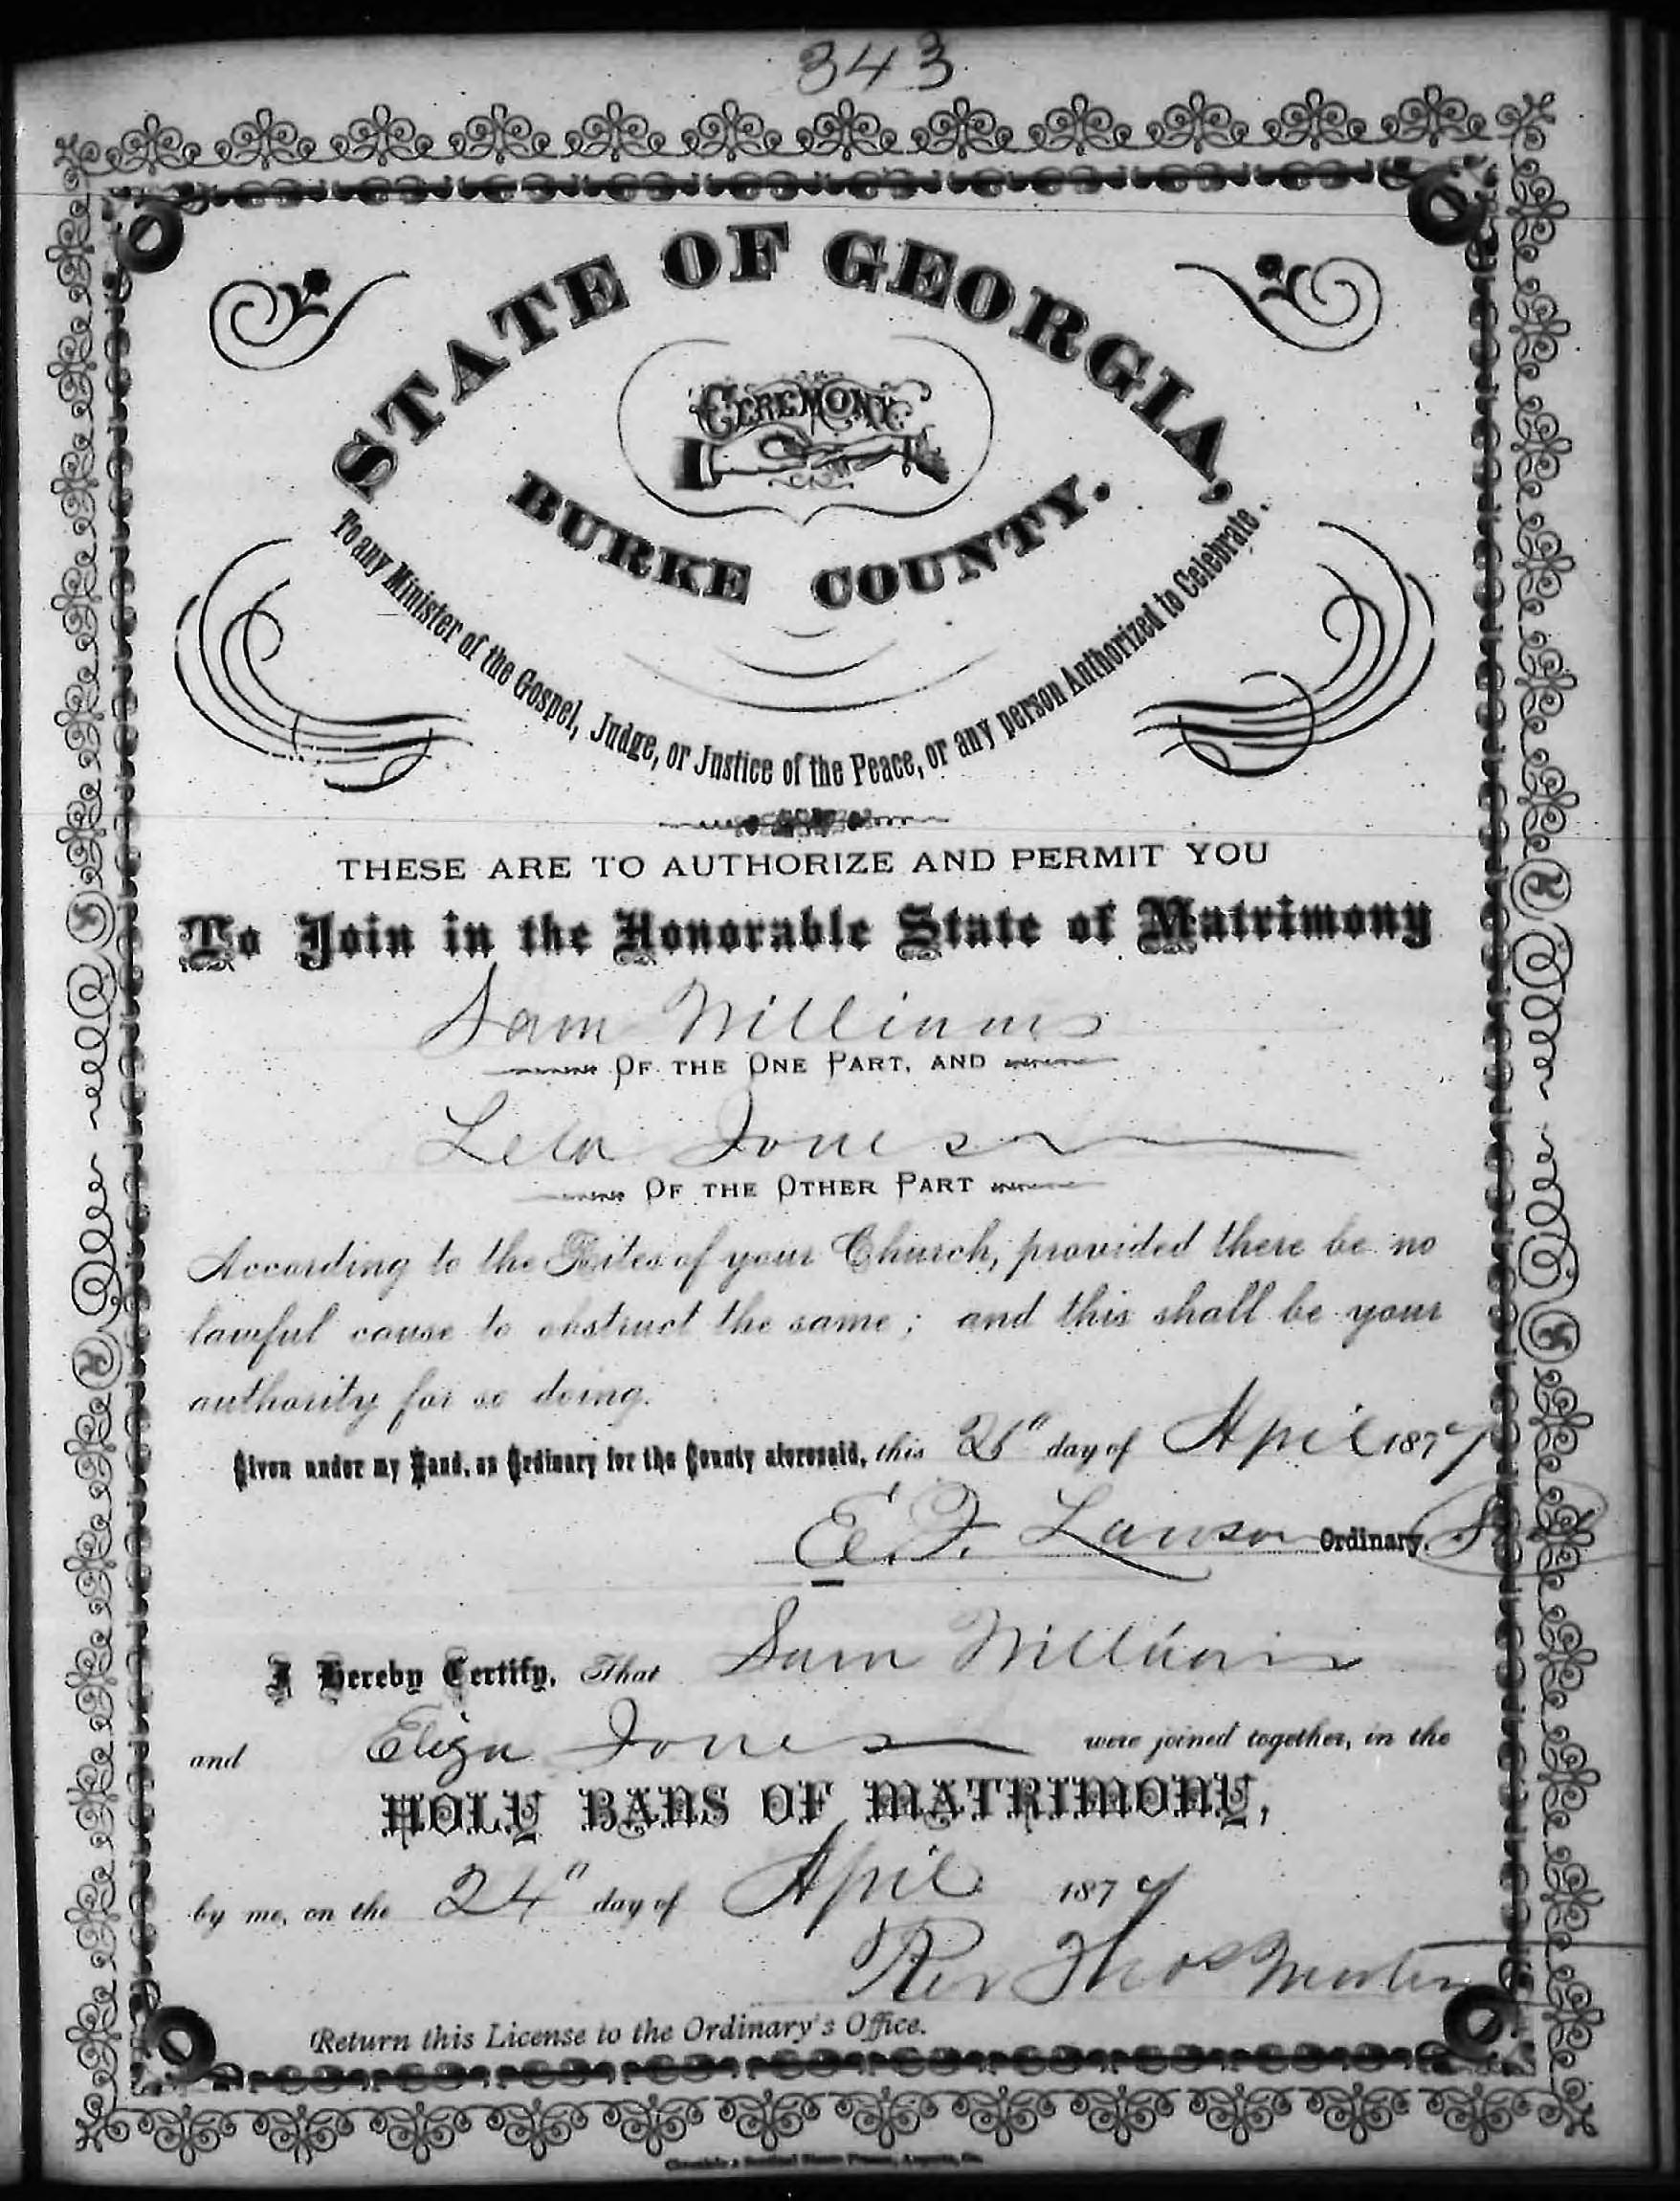 343
STATE OF GEORGIA,
CEREMONY
BURKE COUNTY.
To any Minister of the Gospel, Judge, or Justice of the Peace, or any person Authorized to Celebrate.
THESE ARE TO AUTHORIZE AND PERMIT YOU
To Join in the Honorable State of Matrimony
Sam Williams
OF THE ONE PART, AND
Lela Jones
OF THE OTHER PART
According to the Rites of your Church, provided there be no
lawful cause to obstruct the same; and this shall be your
authority for so doing.
Given under my Hand, as Ordinary for the County aforesaid, this day of April 1877
E. F. Lawson Ordinary.
I Hereby Certify, That Sam Williams
and Eliza Jones were joined together, in the
HOLY BANS OF MATRIMONY,
by me, on the 24" day of April 1877
Rev Thos
Return this License to the Ordinary's Office.
Chronicle & Sentinel Steam Presses, Augusta, Ga.